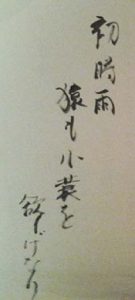 初時雨
猿も小蓑を
欲しげなり